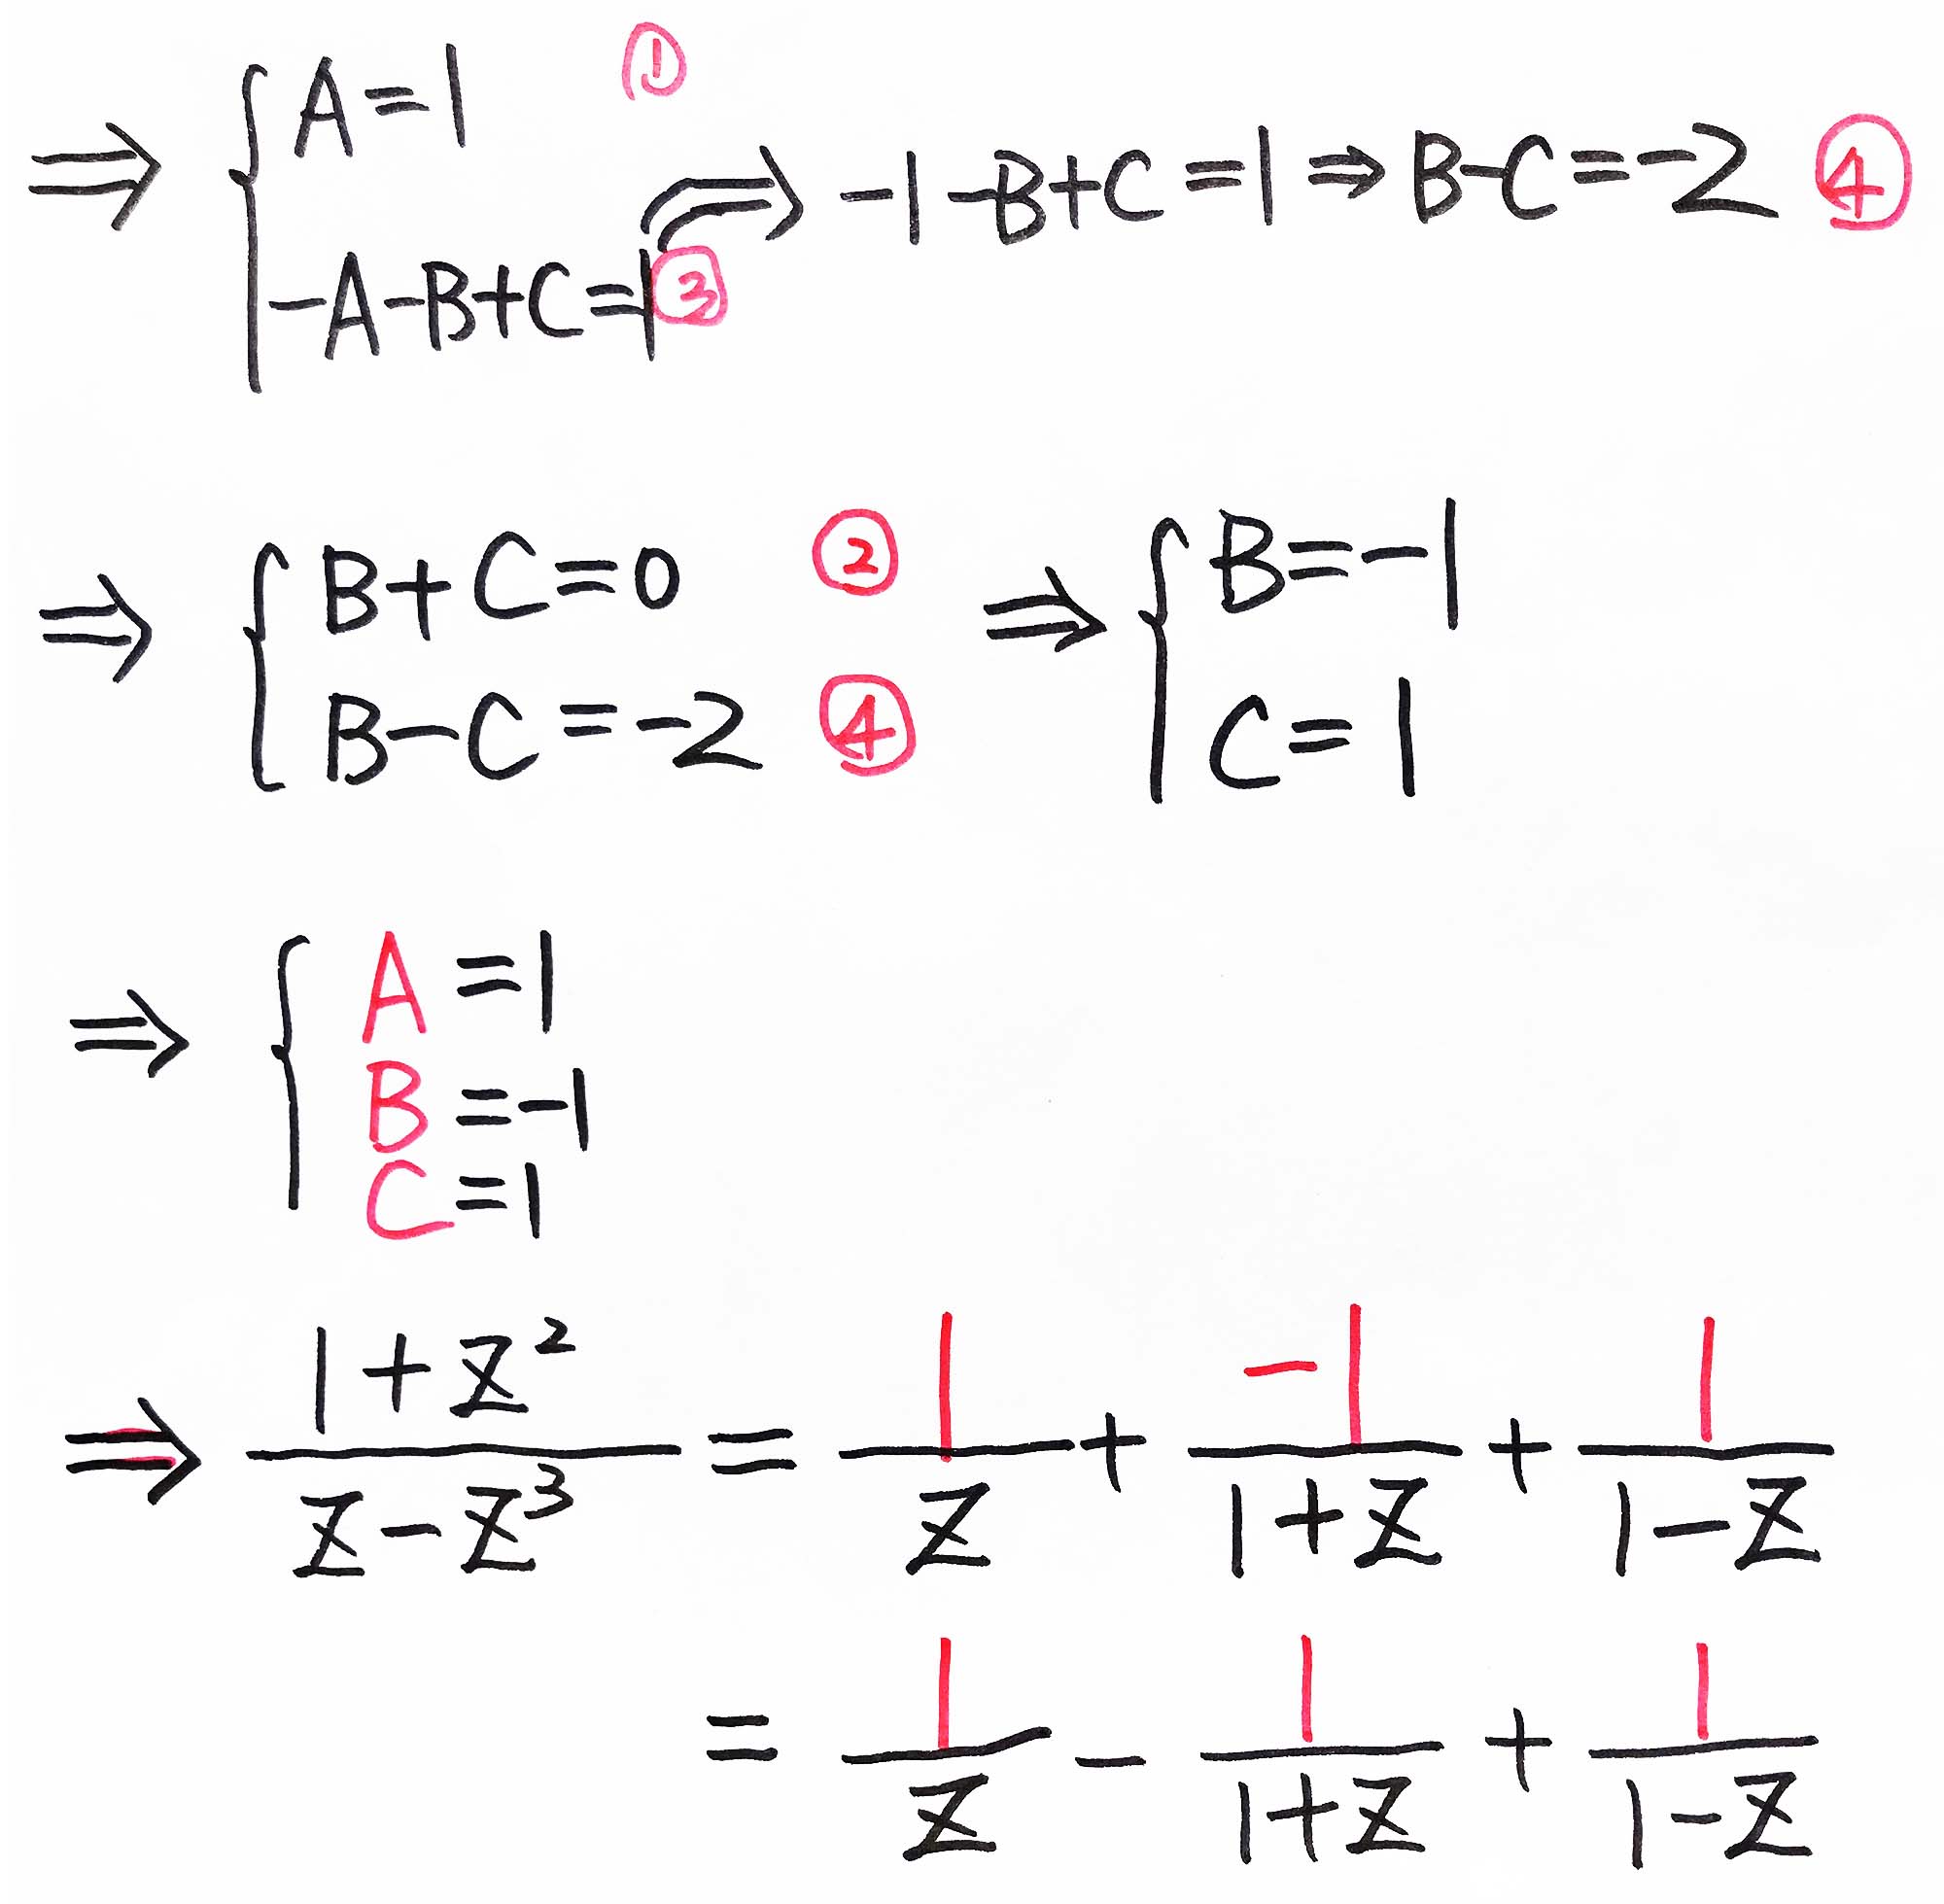 ⇒ { A=1 ①
-A-B+C=1 ③ ⇒ -1-B+C=1 ⇒ B-C=-2 ④
⇒ { B+C=0 ② ⇒ { B=-1
B-C=-2 ④ C=1
⇒ { A=1
B=-1
C=1
⇒ \frac{1+z^2}{z-z^3} = \frac{1}{z} + \frac{-1}{1+z} + \frac{1}{1-z}
= \frac{1}{z} - \frac{1}{1+z} + \frac{1}{1-z}